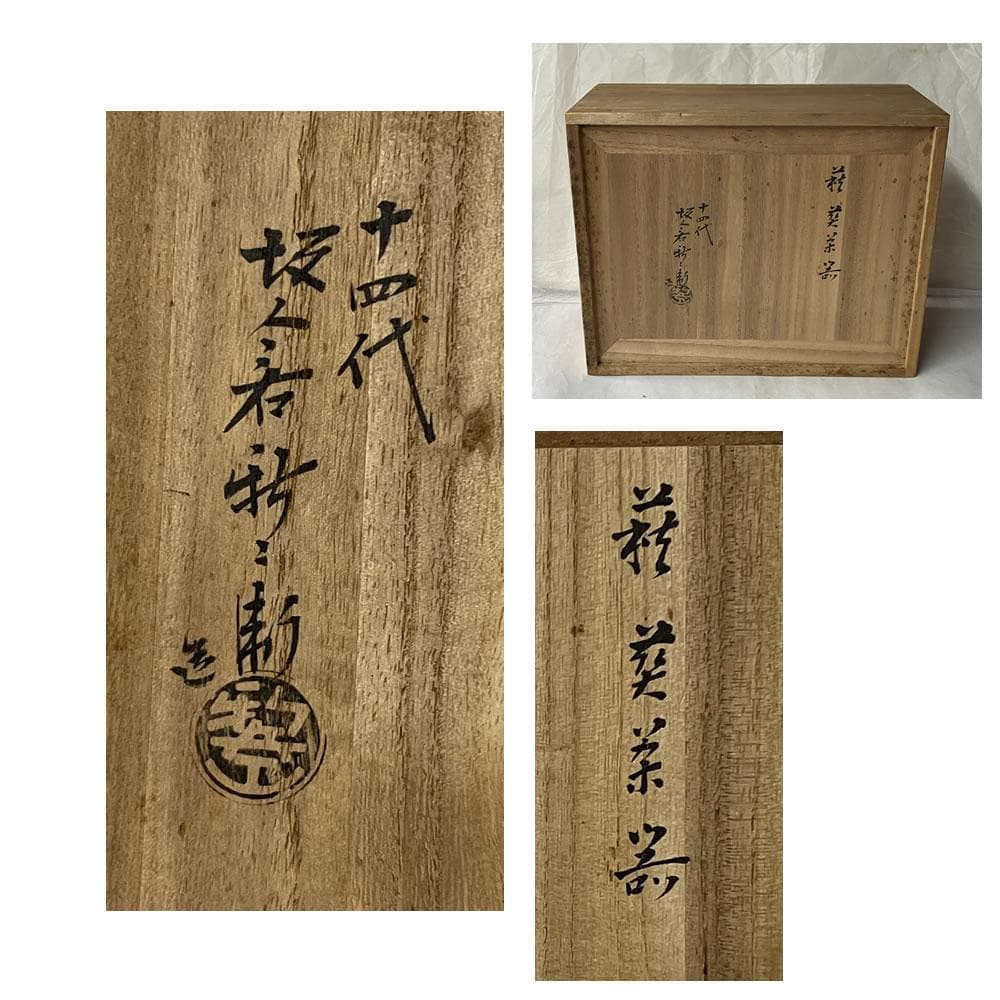 十四代
坂倉新兵衛
造
萩 煎茶器
十四代
坂倉新兵衛
造
萩 煎茶器